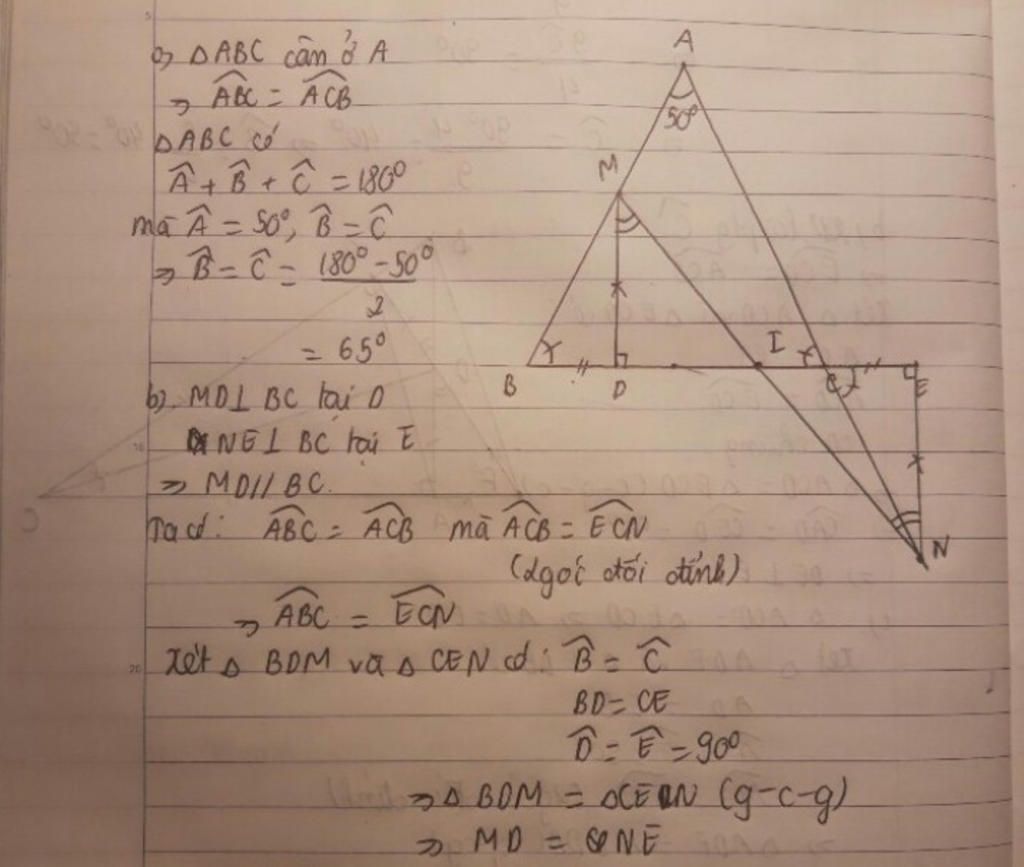 a) △ABC cân ở A
⇒ \widehat{ABC} = \widehat{ACB}
△ABC có
\widehat{A} + \widehat{B} + \widehat{C} = 180°
mà \widehat{A} = 50°, \widehat{B} = \widehat{C}
⇒ \widehat{B} = \widehat{C} = \frac{180° - 50°}{2}
= 65°
b). MD⊥ BC tại D
NE⊥ BC tại E
⇒ MD// BC.
Ta có: \widehat{ABC} = \widehat{ACB} mà \widehat{ACB} = \widehat{ECN}
(2góc đối đỉnh)
⇒ \widehat{ABC} = \widehat{ECN}
Xét △ BDM và △ CEN có: \widehat{B} = \widehat{C}
BD = CE
\widehat{D} = \widehat{E} = 90°
⇒ △ BDM = △CEN (g-c-g)
⇒ MD = NE
A
50°
M
I
B
D
C
E
N